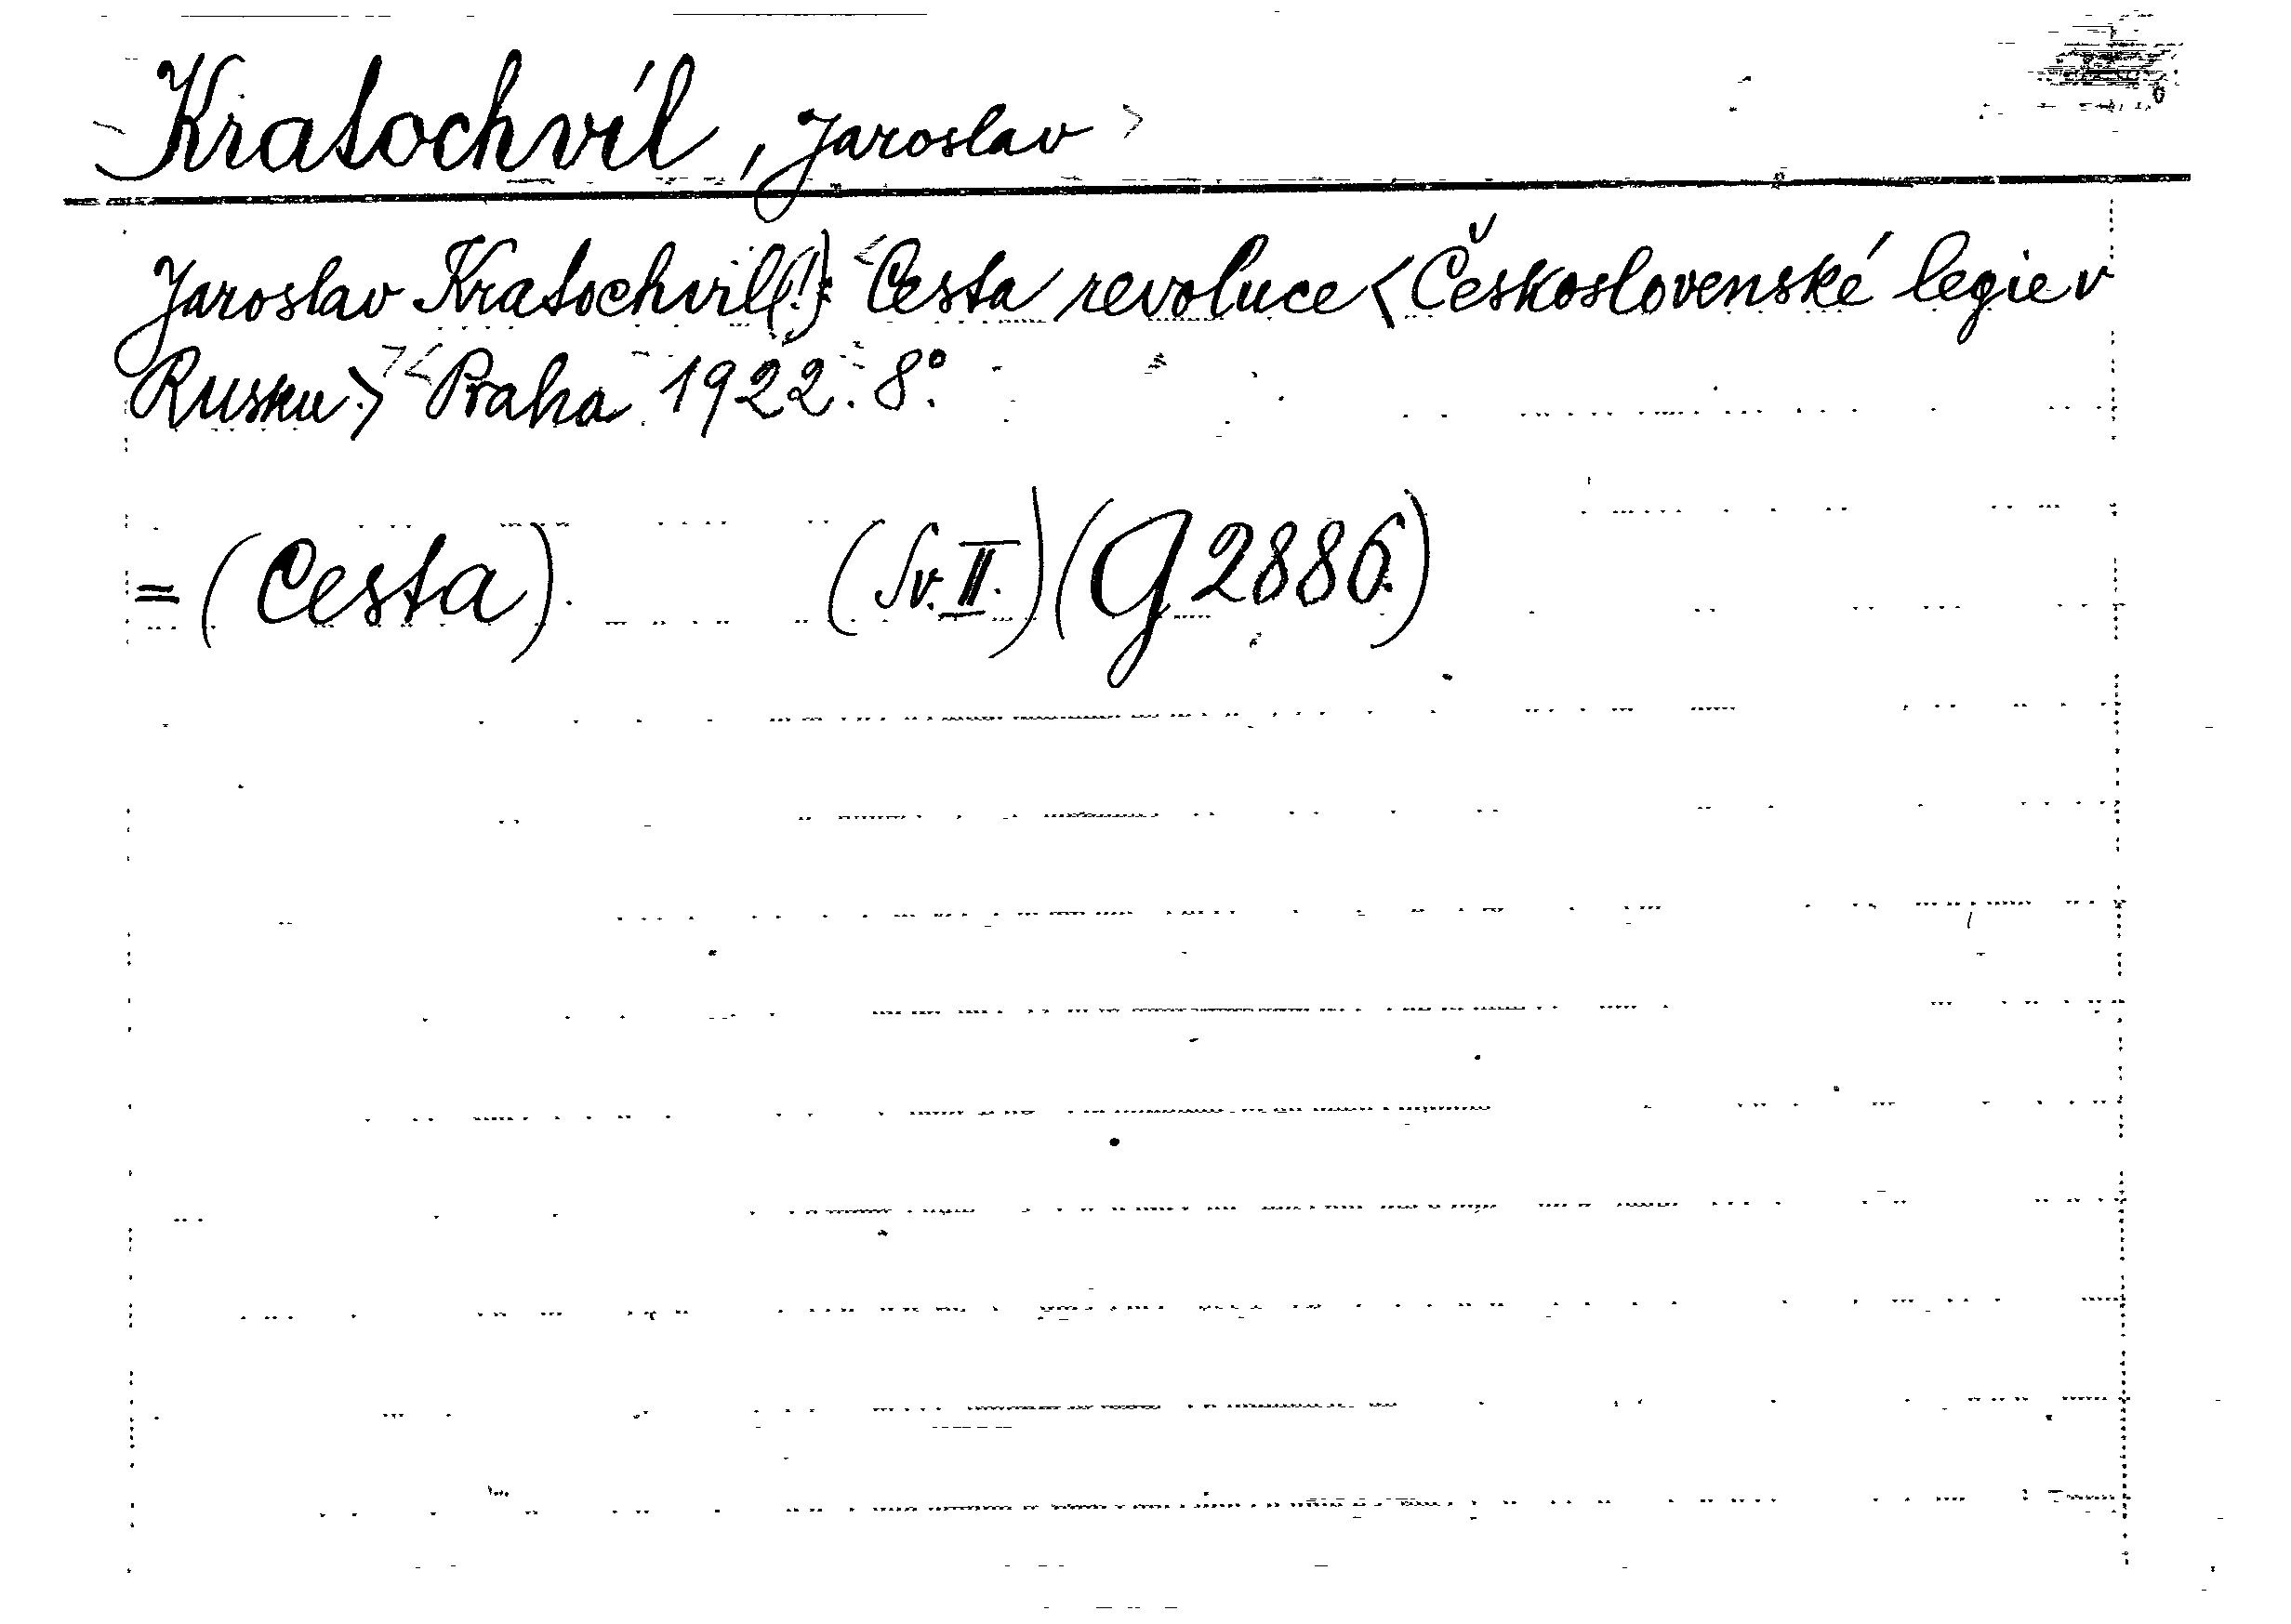 Kratochvíl, Jaroslav
Jaroslav Kratochvil(!): Cesta revoluce <Československé legie v
Rusku.> Praha 1922. 8°.
= (Cesta). (Sv. II.) (G 2886.)